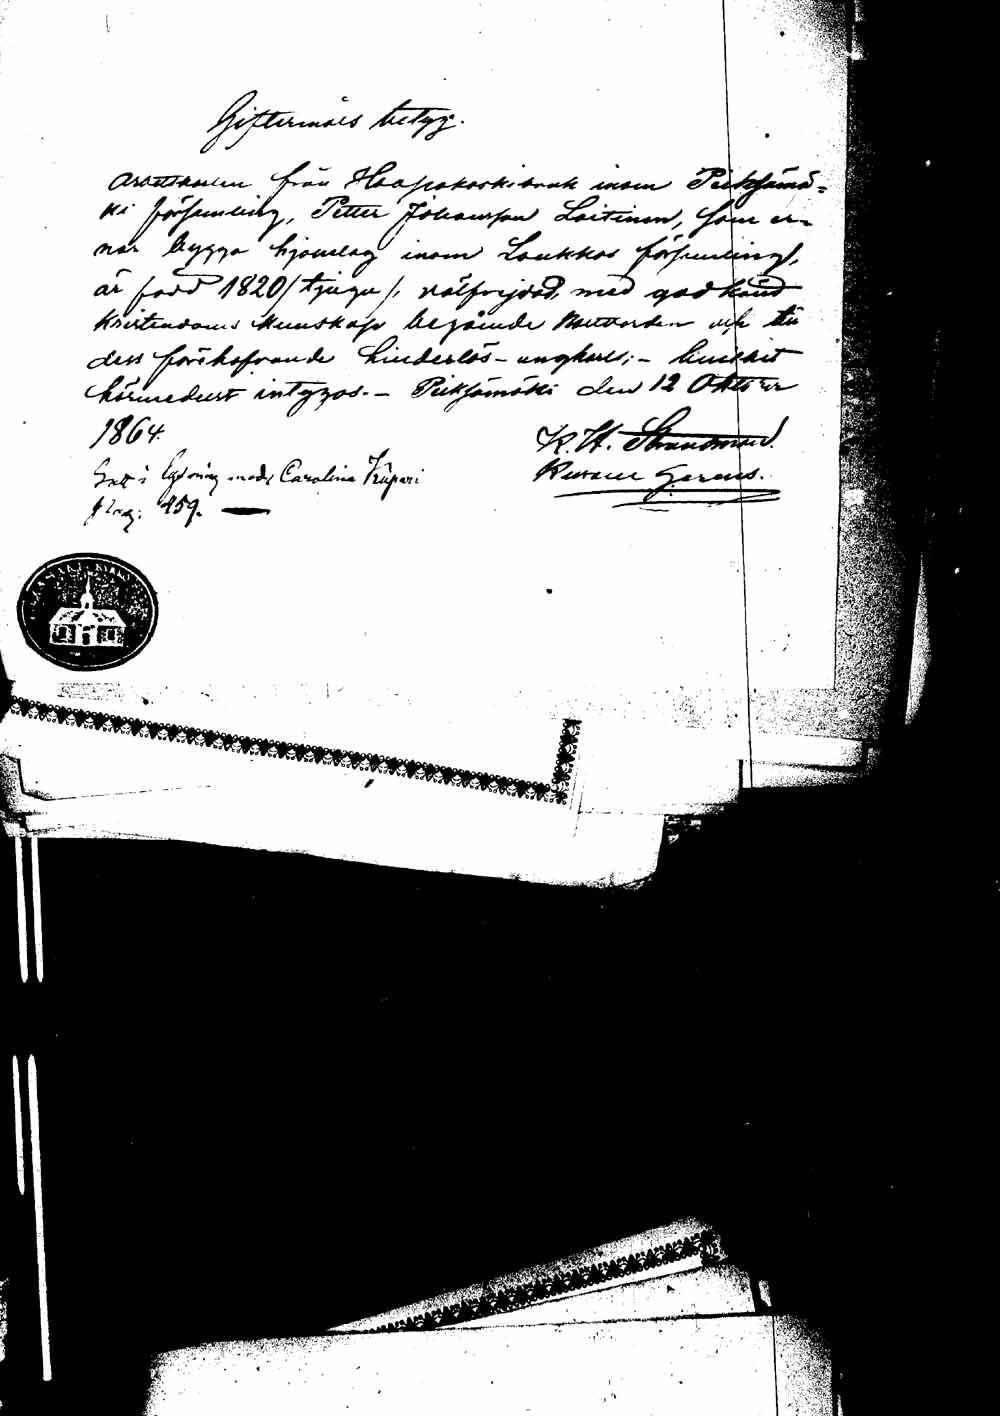 Giftermåls betyg.
Arbetskarlen från Haapakoski bruk inom Pieksämä-
ki församling, Petter Johansson Laitinen, som är-
nar bygga hjonelag inom Laukkas församling,
är född 1820 /tjugu/, välfrejdad, med godkänd
kristendoms kunskap begående Nattvarden och till
dess förehafvande hinderlös - ungkarl; - hvilket
härmedelst intygas. - Pieksämäki den 12 Oktober
1864.
K. H. Strandman.
Satt i lysning med Carolina
pag. 459.